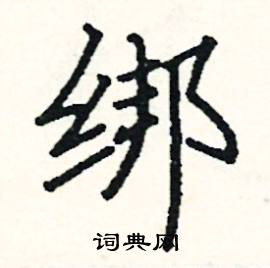 绑
词典网